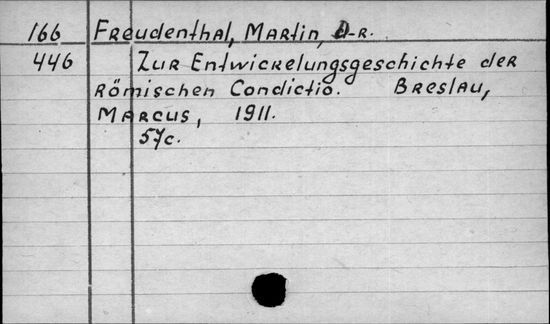 166 Freudenthal, Martin, D-r.
446 Zur Entwickelungsgeschichte der
Römischen Condictio. Breslau,
Marcus, 1911.
57c.